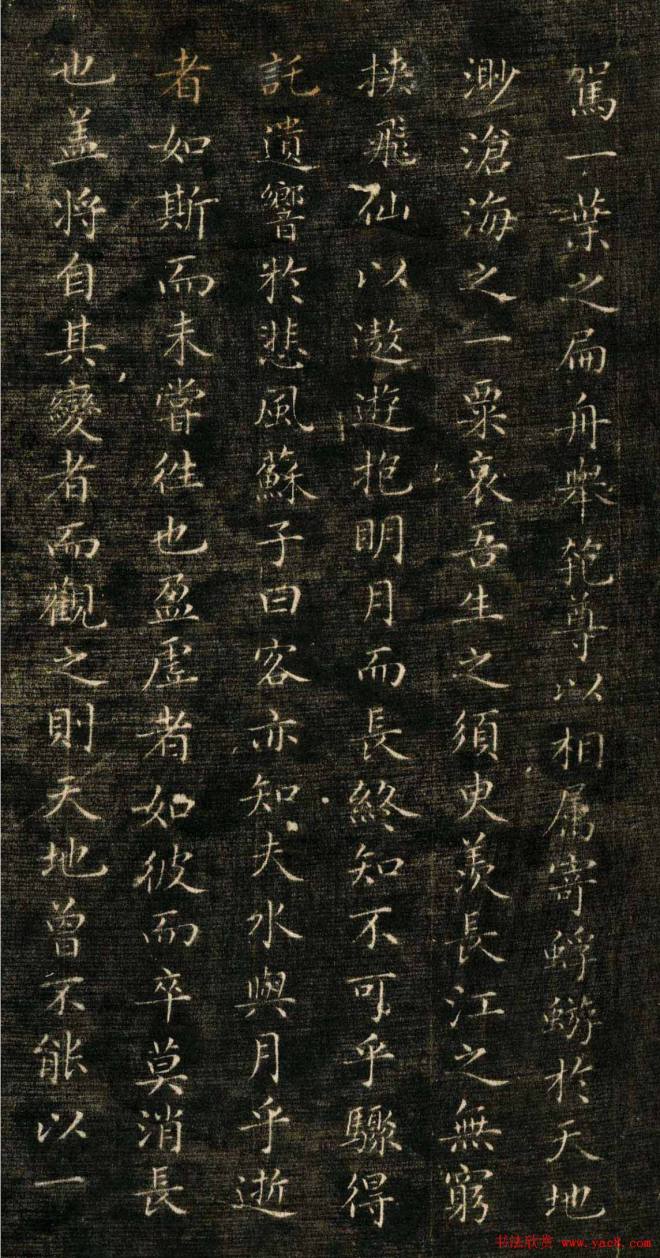 駕一葉之扁舟舉匏尊以相属寄蜉蝣於天地
渺滄海之一粟哀吾生之須臾羨長江之無窮
挾飛仙以遨遊抱明月而長終知不可乎驟得
託遺響於悲風蘇子曰客亦知夫水與月乎逝
者如斯而未嘗往也盈虛者如彼而卒莫消長
也盖將自其變者而觀之則天地曾不能以一
书法欣赏 www.yac8.com